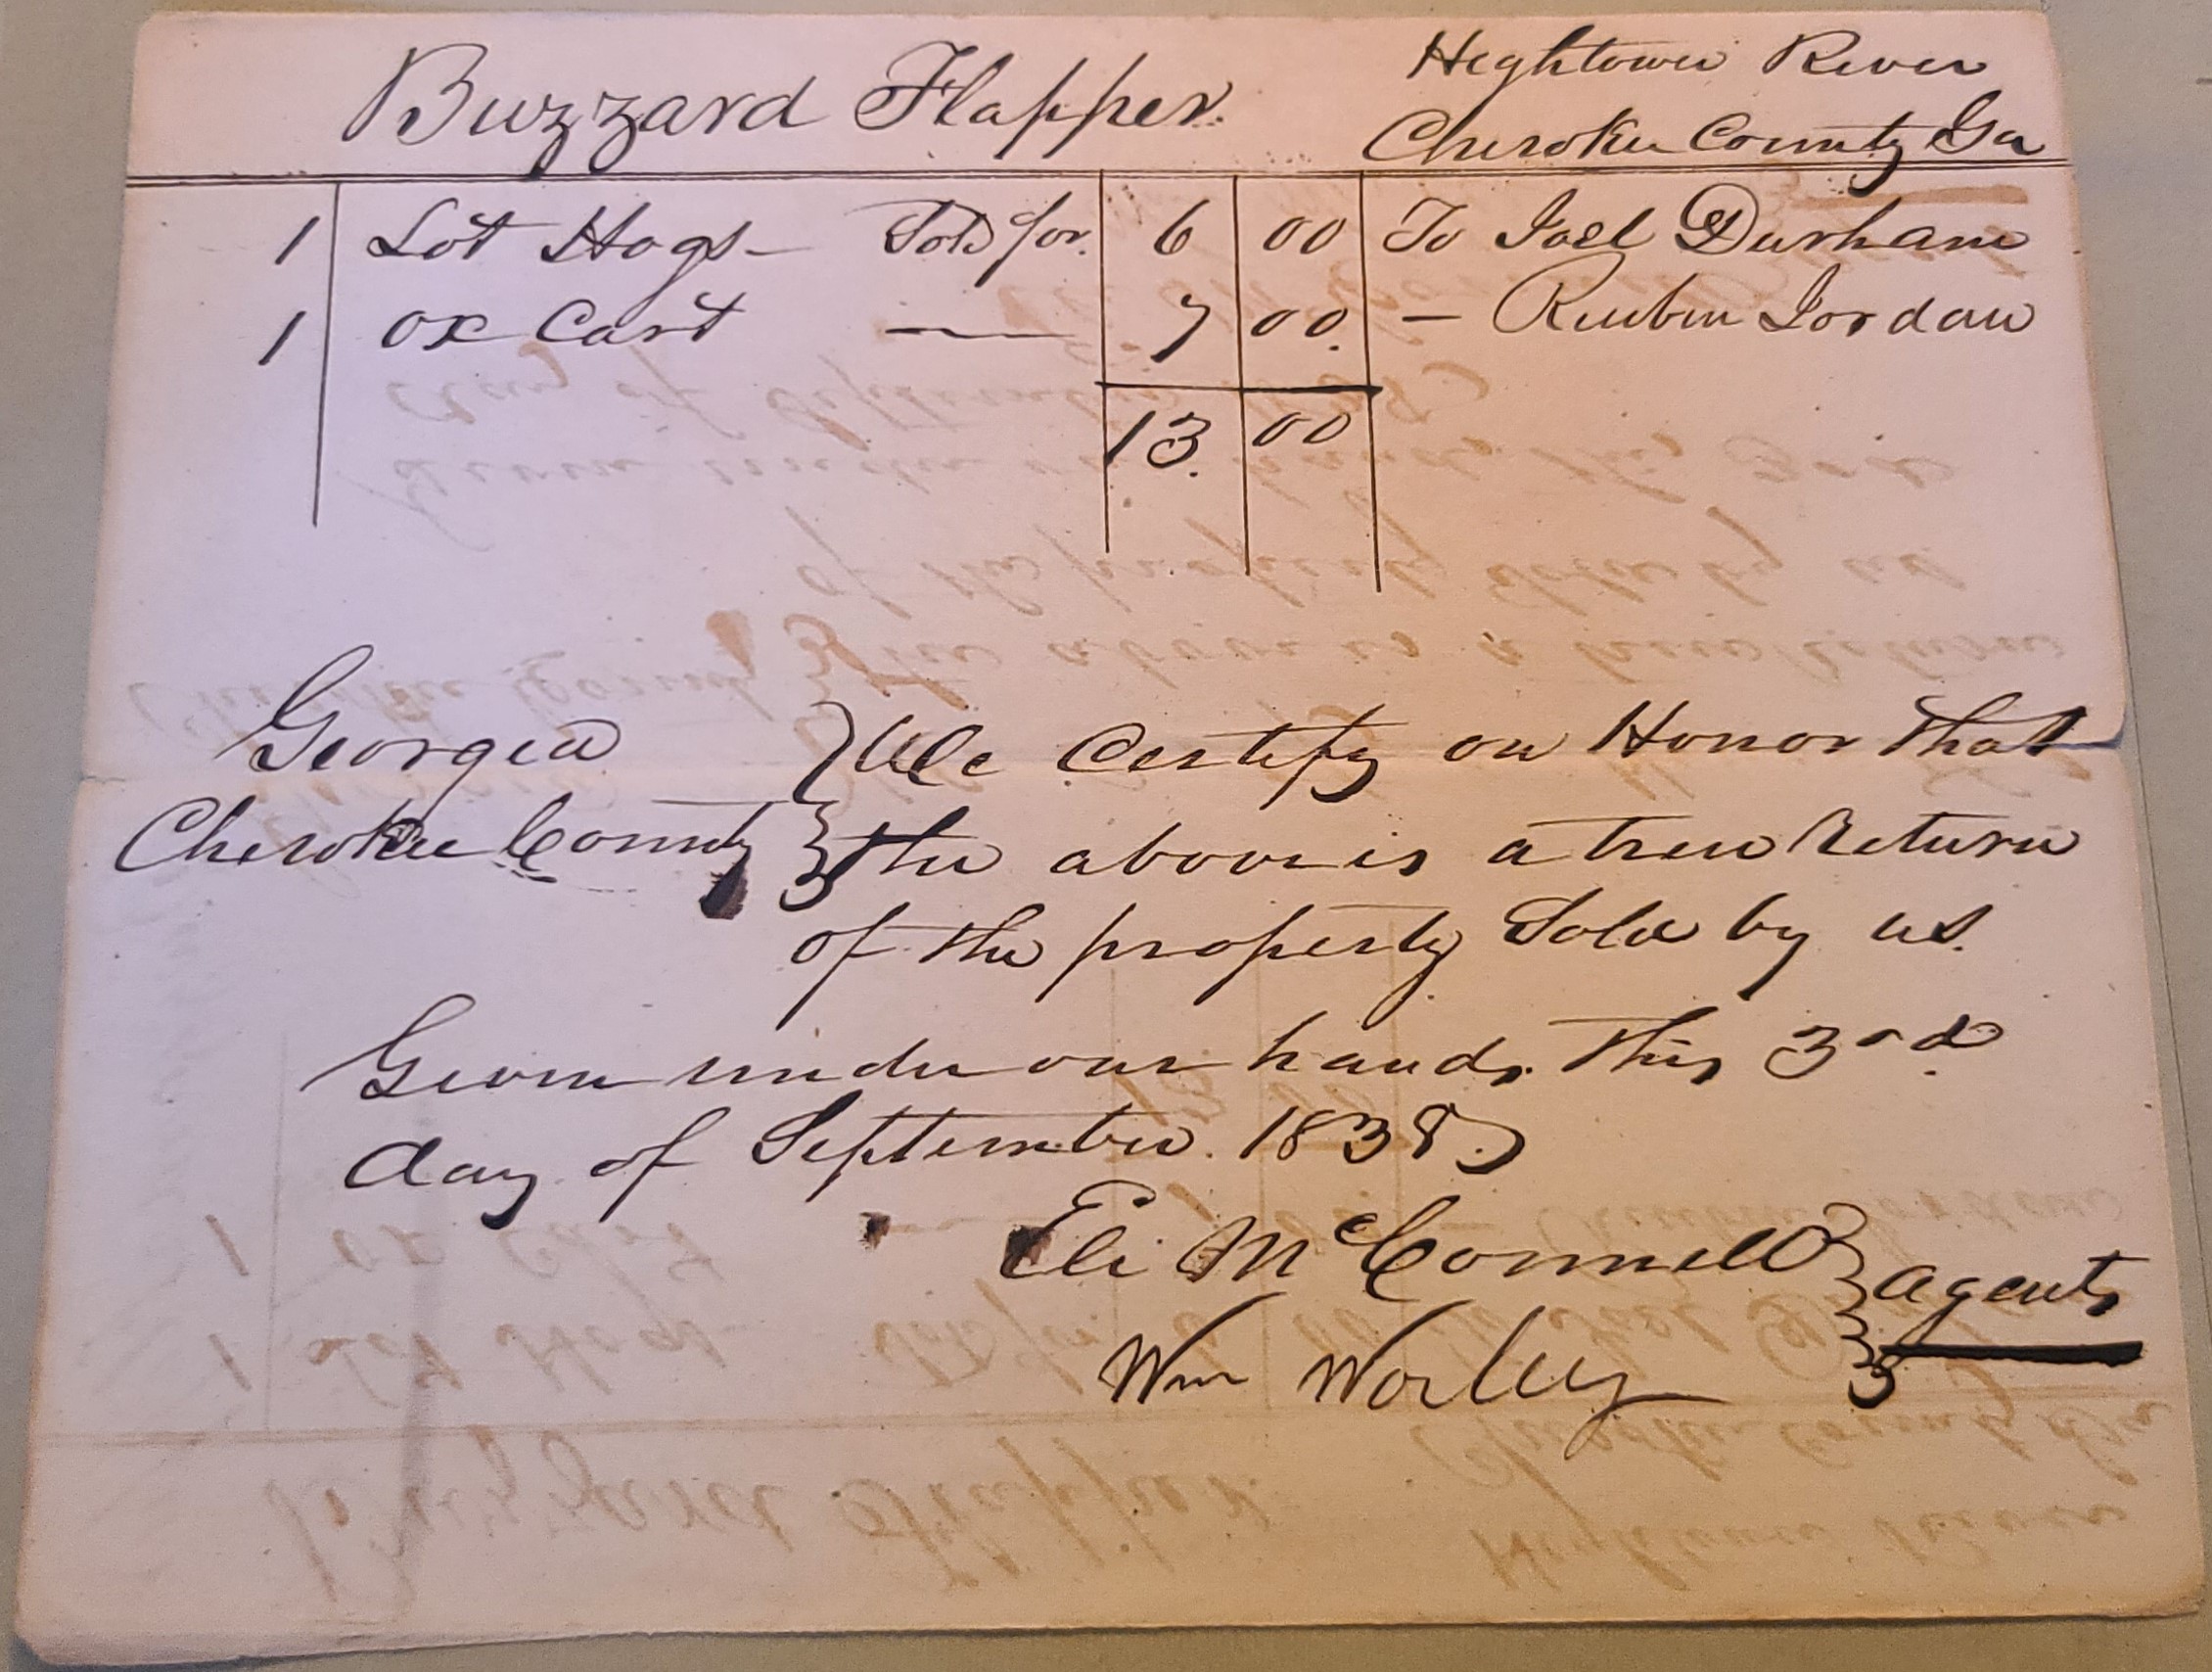 Buzzard Flapper.
Hightower River
Cherokee County Ga
1 Lot Hogs - Sold for. 6 00 To Joel Durham
1 Ox Cart — 7 00. - Reuben Jordan
13. 00
Georgia } We Certify on Honor that
Cherokee County } the above is a true Return
of the property Sold by us.
Given under our hands this 3rd.
day of September. 1838.
Eli McConnell } agents
Wm Worley